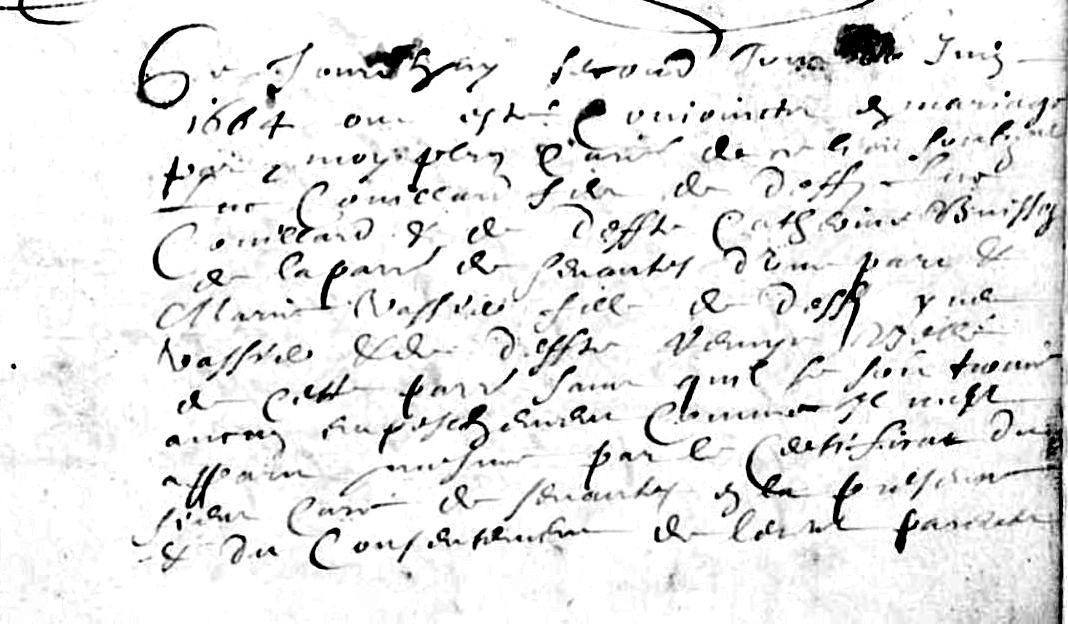 Ce Jourdhuy second Jour de Juin
1664 ont esté Conjoincts en mariage
par moy pbre Curé de ce lieu soubz
Luc Couillard filz de defft Luc
Couillard & de deffte Catherine Buisson
de la parr de Servantes d'une part &
Marie Vassées fille de deff yues
Vassées & de deffte
de Cette parr sans quil se soit trouué
aucun empeschement Comme Il mest
apparu mesme par le Certificat du
sieur Curé de Servantes en la presence
& du Consentement de leurs parents